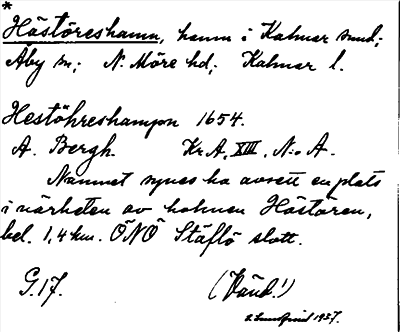 *
Hästöreshamn, hamn i Kalmar sund;
Åby sn; N. Möre hd; Kalmar l.
Hestöhreshampn 1654.
A. Bergh. Kr.A, XIII, N:o A.
Namnet synes ha avsett en plats
i närheten av holmen Hästören,
bel. 1,4 km. ÖNÖ Stäflö slott.
G. 17. (Vänd!)
E. Lundqvist 1927.